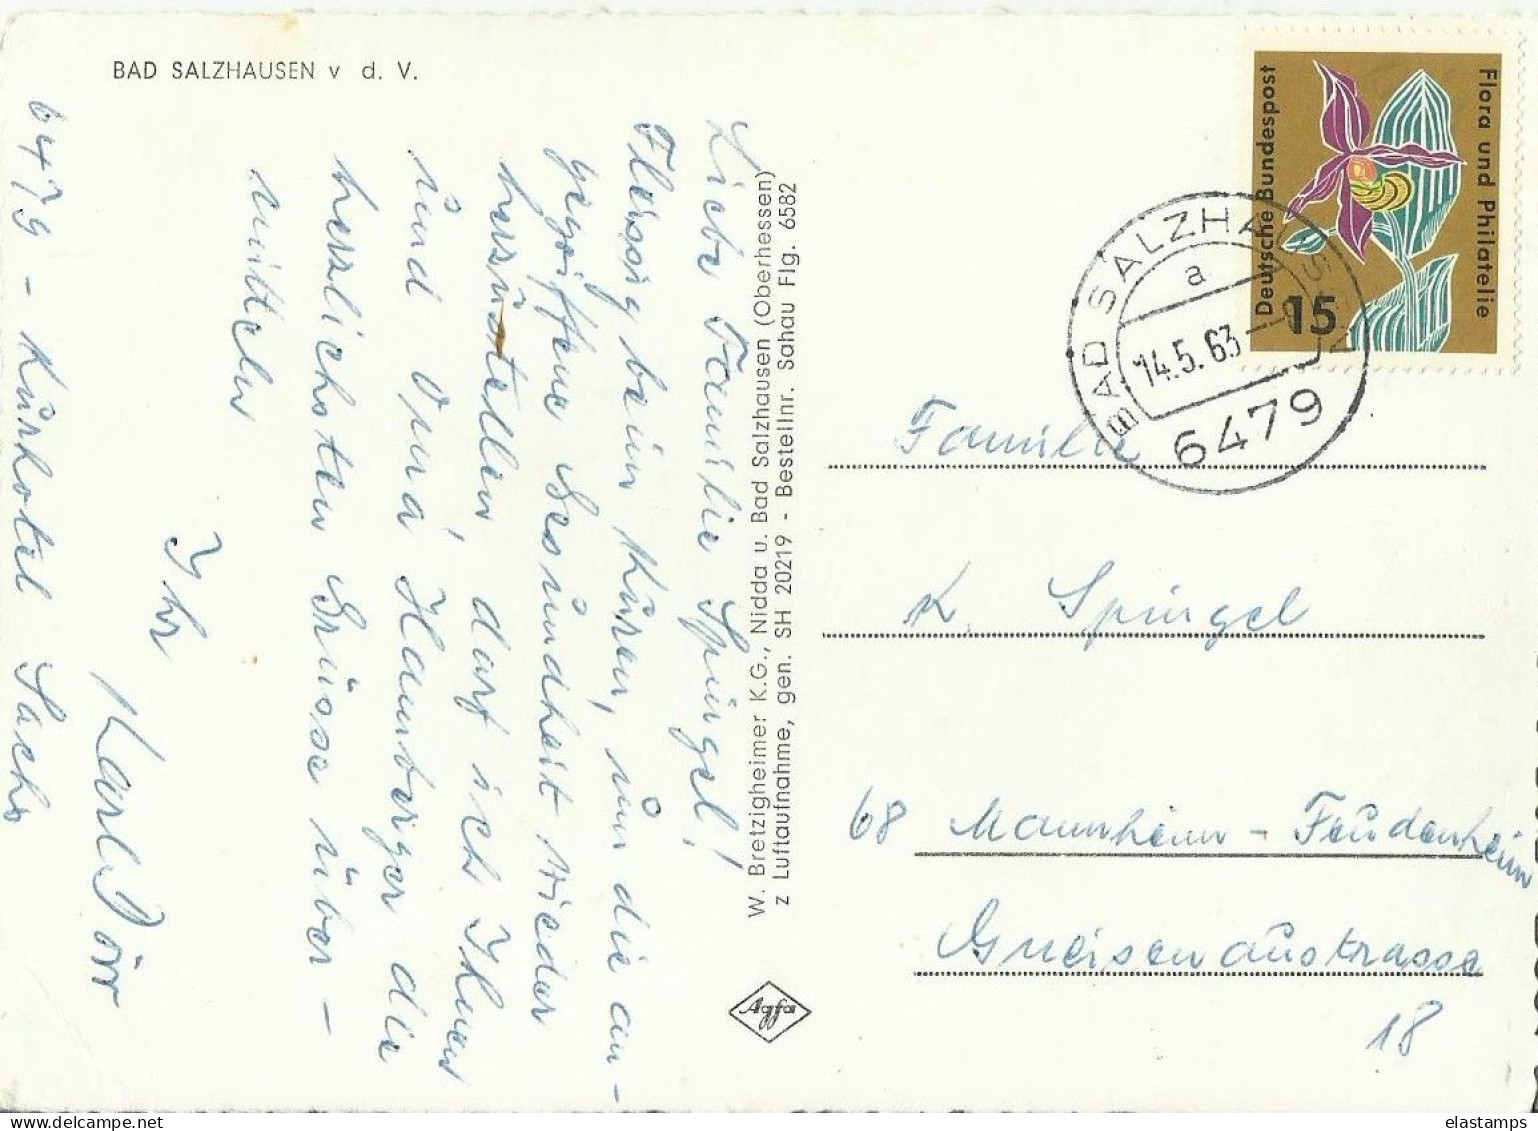 BAD SALZHAUSEN v d. V.
Liebe Familie Spürgel!
Fleissig beim Kuren, um die an-
gegriffene Gesundheit wieder
herzustellen, darf ich Ihnen
und Oma Hamberger die
herzlichsten Grüsse über-
mitteln
Ihr
Karl Dörr
6479 - Kurhotel Sachs
W. Bretzigheimer K.G., Nidda u. Bad Salzhausen (Oberhessen)
z Luftaufnahme, gen. SH 20219 - Bestellnr. Sahau Flg. 6582
Agfa
Deutsche Bundespost
Flora und Philatelie
15
BAD SALZHAUSEN
a
14.5.63
6479
Familie
K. Spürgel
68 Mannheim - Feudenheim
Gneisenaustrasse
18
elastamps